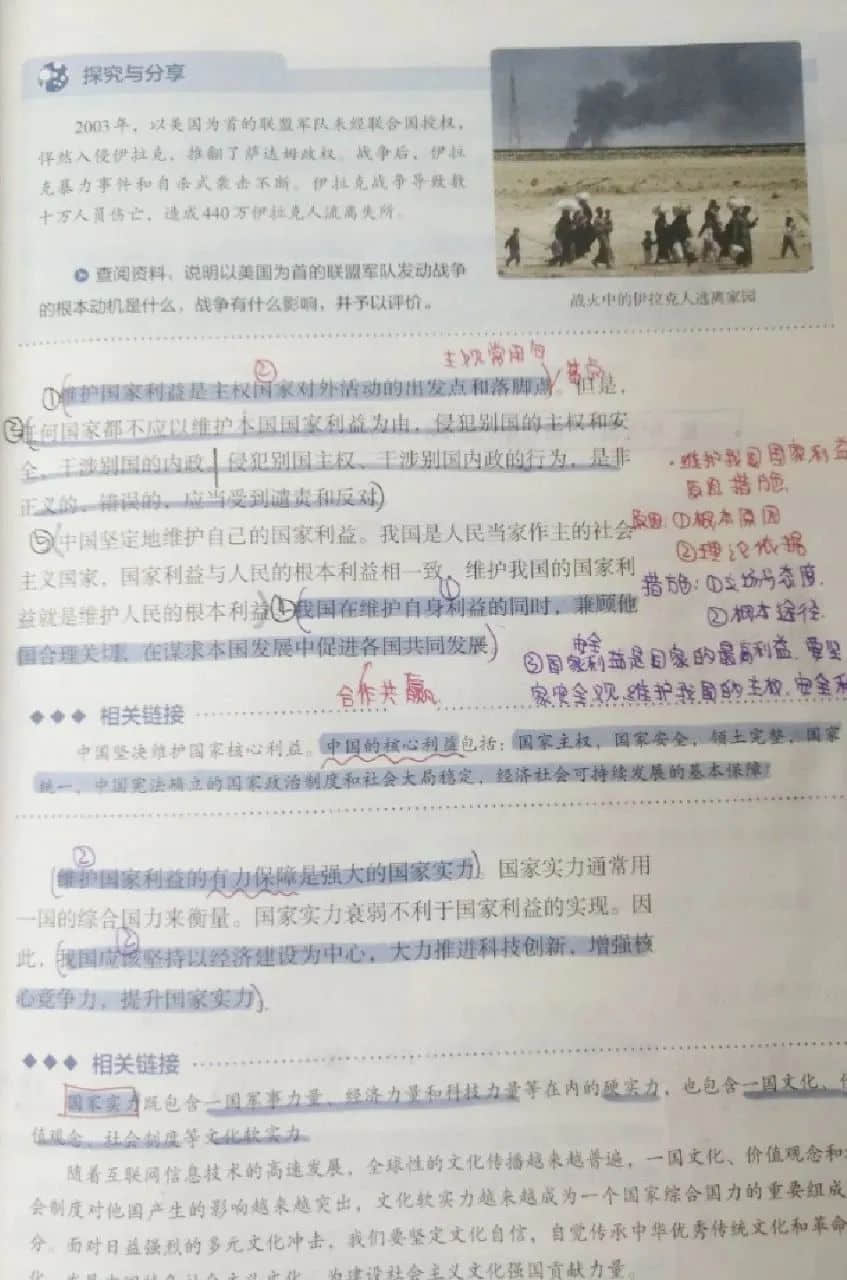 探究与分享
2003年，以美国为首的联盟军队未经联合国授权，
悍然入侵伊拉克，推翻了萨达姆政权。战争后，伊拉
克暴力事件和自杀式袭击不断。伊拉克战争导致数
十万人员伤亡，造成440万伊拉克人流离失所。
查阅资料，说明以美国为首的联盟军队发动战争
的根本动机是什么，战争有什么影响，并予以评价。
战火中的伊拉克人逃离家园
主观常用句
② 落点
①维护国家利益是主权国家对外活动的出发点和落脚点。但是，
②任何国家都不应以维护本国国家利益为由，侵犯别国的主权和安
全，干涉别国的内政。侵犯别国主权、干涉别国内政的行为，是非
正义的、错误的，应当受到谴责和反对。
·维护我国国家利益
原因 措施
原因：①根本原因
②理论依据
措施：①立场与态度
②根本途径
③中国坚定地维护自己的国家利益。我国是人民当家作主的社会
主义国家，国家利益与人民的根本利益相一致，维护我国的国家利
益就是维护人民的根本利益。④我国在维护自身利益的同时，兼顾他
①
国合理关切，在谋求本国发展中促进各国共同发展。
合作共赢
③国家安全利益是国家的最高利益，要坚
家安全观，维护我国的主权、安全和
相关链接
中国坚决维护国家核心利益。中国的核心利益包括：国家主权，国家安全，领土完整，国家
统一，中国宪法确立的国家政治制度和社会大局稳定，经济社会可持续发展的基本保障。
②
维护国家利益的有力保障是强大的国家实力。国家实力通常用
一国的综合国力来衡量。国家实力衰弱不利于国家利益的实现。因
②
此，我国应该坚持以经济建设为中心，大力推进科技创新，增强核
心竞争力，提升国家实力。
相关链接
国家实力既包含一国军事力量、经济力量和科技力量等在内的硬实力，也包含一国文化、价
值观念、社会制度等文化软实力。
随着互联网信息技术的高速发展，全球性的文化传播越来越普遍，一国文化、价值观念和
会制度对他国产生的影响越来越突出，文化软实力越来越成为一个国家综合国力的重要组成
分。面对日益强烈的多元文化冲击，我们要坚定文化自信，自觉传承中华优秀传统文化和革命
化，发展中国特色社会主义文化，为建设社会主义文化强国贡献力量。